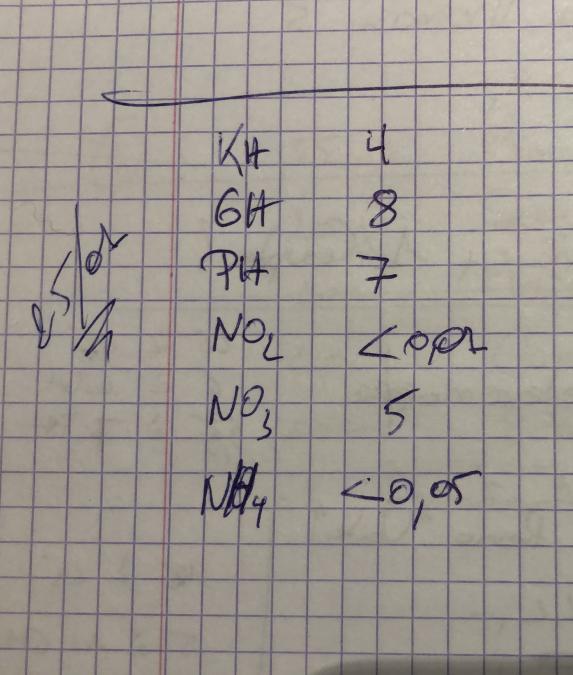 KH 4
GH 8
PH 7
NO₂ <0,01
NO₃ 5
NH₄ <0,05